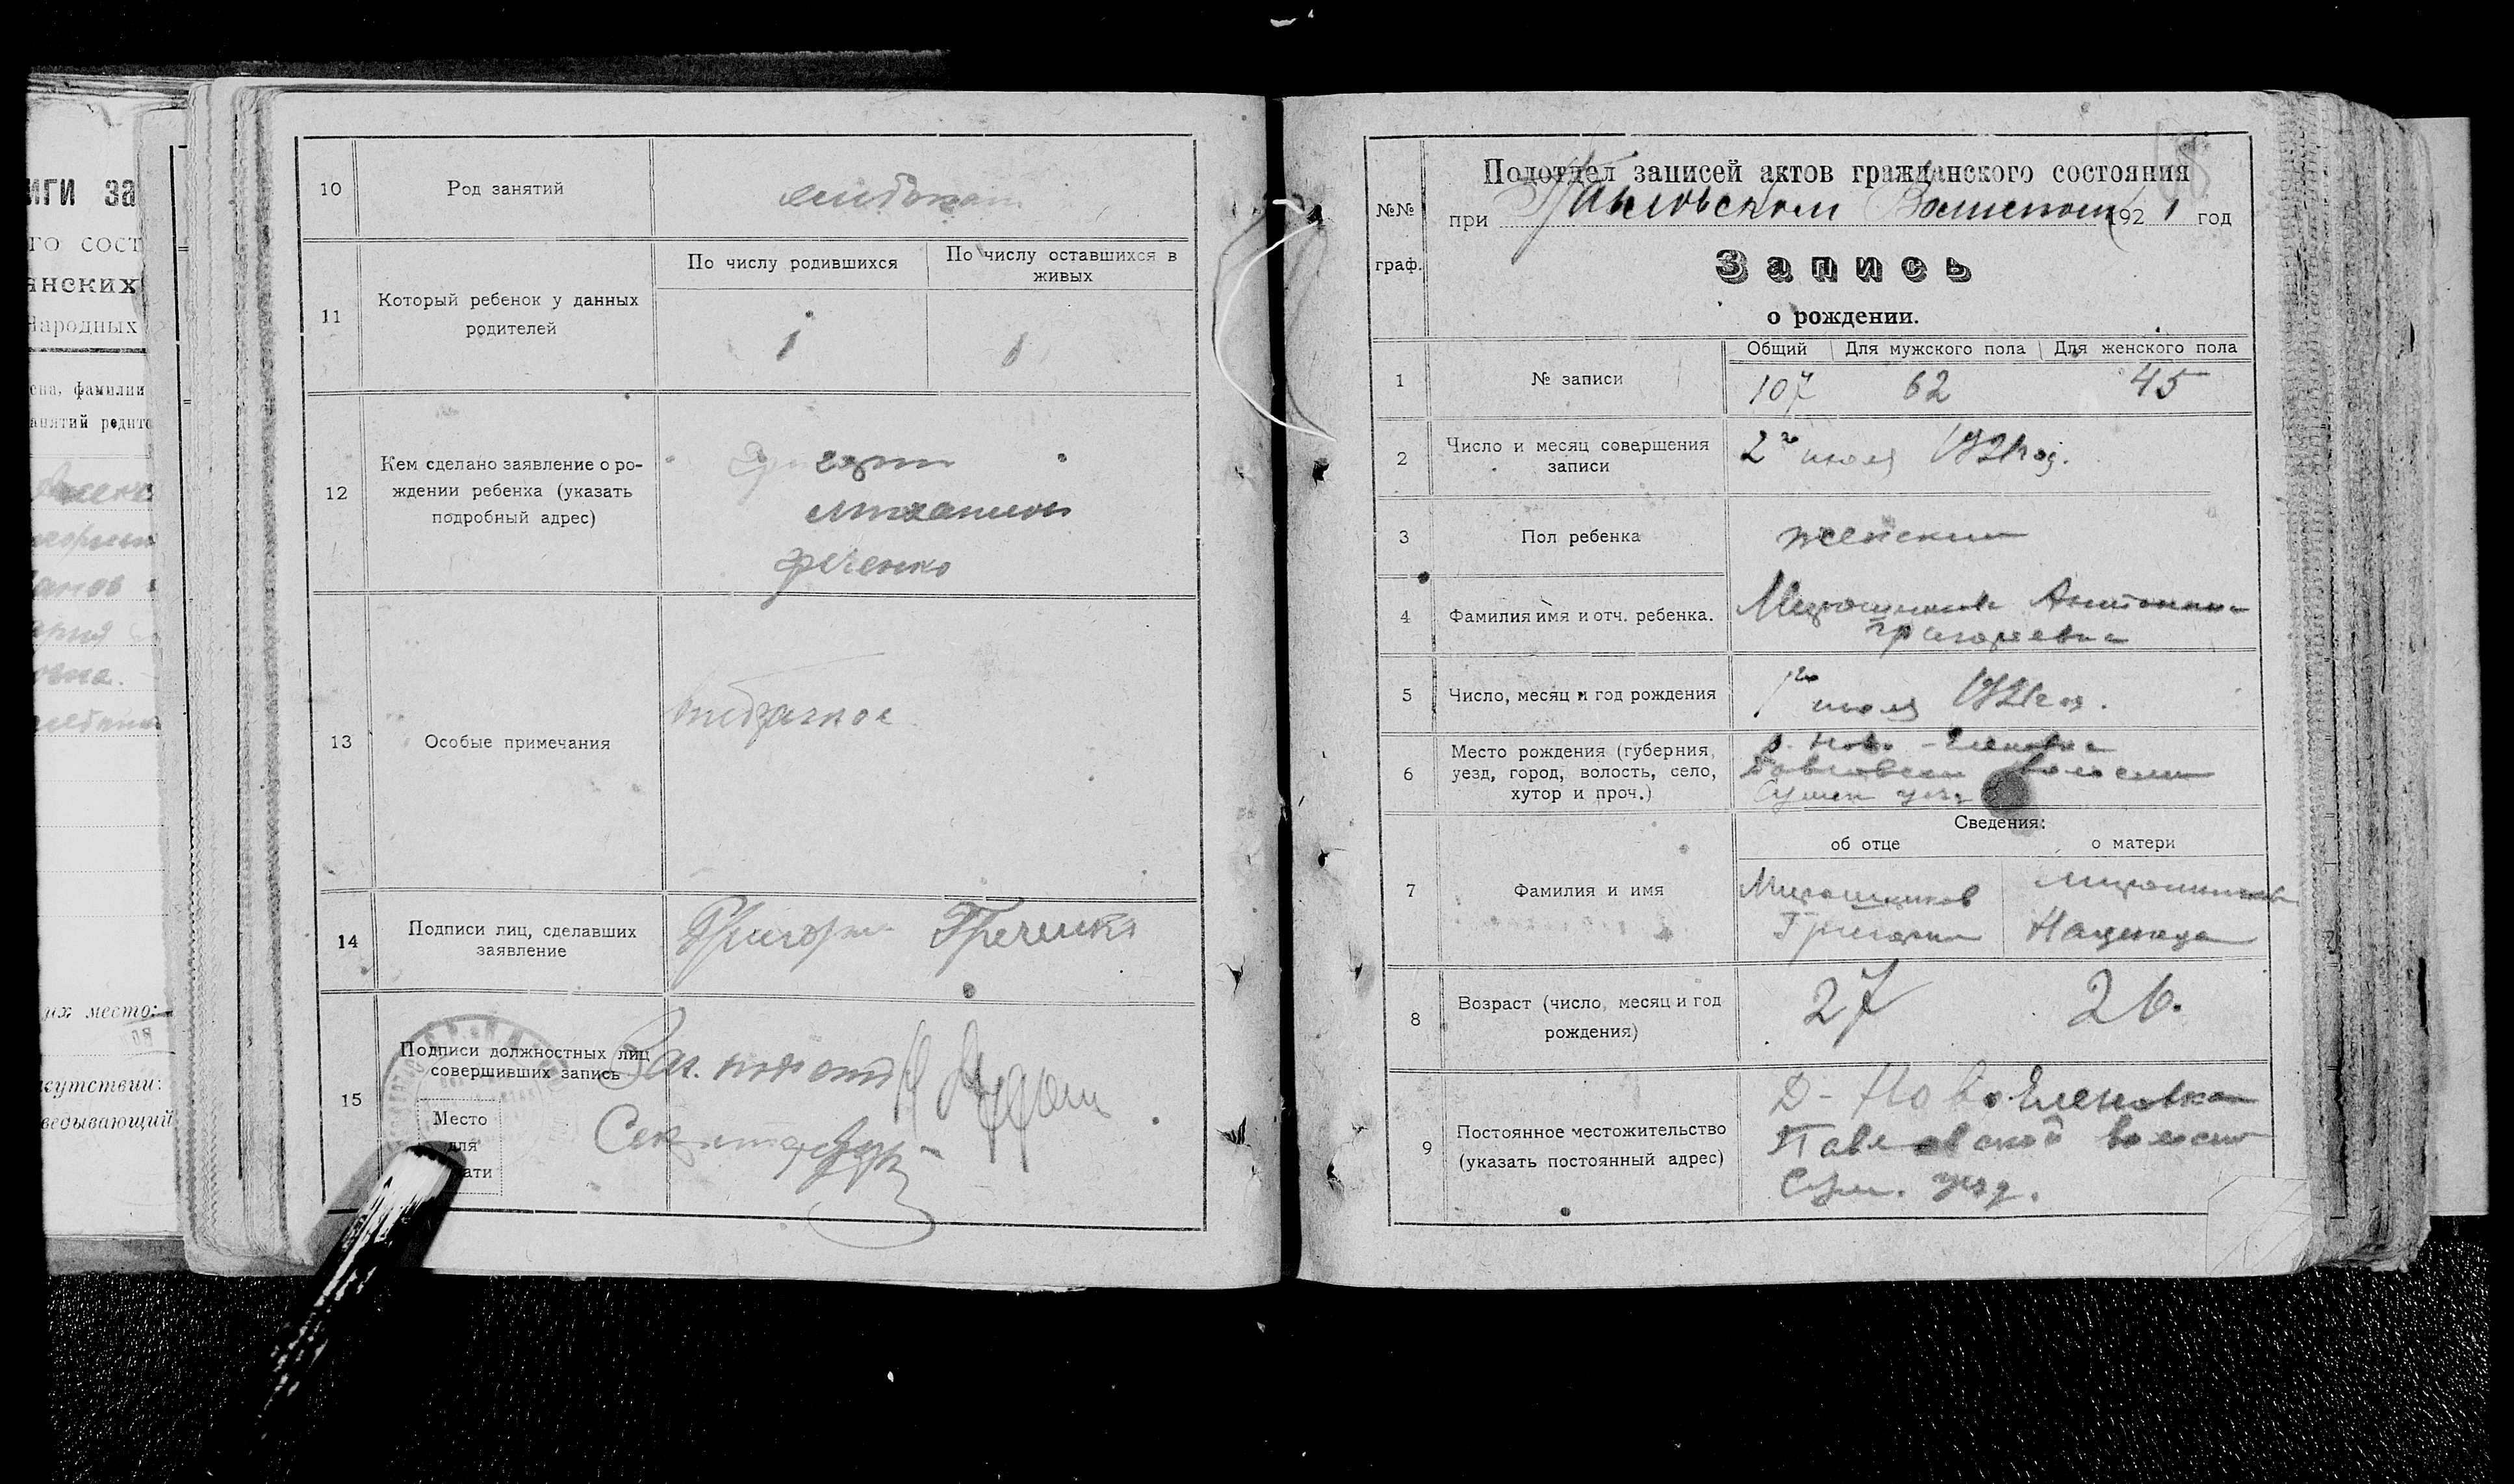 иги за
го сост
анских
Народных
ена, фамилии
анятий
их место:
сутствии:
ведывающий
10
Род занятий
11
Который ребенок у данных
родителей
По числу родившихся
По числу оставшихся в
живых
1
1
12
Кем сделано заявление о ро-
ждении ребенка (указать
подробный адрес)
Григорий
Михайлов
Греченко
13
Особые примечания
14
Подписи лиц, сделавших
заявление
Григорий Греченко
15
Подписи должностных лиц
совершивших запись
Место
для
ати
Зав. подотд
Секретарь
№№
граф.
Подотдел записей актов гражданского состояния
при Павловском Волисполк 1921 год
Запись
о рождении.
1
№ записи
Общий
Для мужского пола
Для женского пола
107
62
45
2
Число и месяц совершения
записи
2го июля 1921 год.
3
Пол ребенка
женский
4
Фамилия имя и отч. ребенка.
Мирошников Антонина
Григорьевна
5
Число, месяц и год рождения
1го июля 1921 год.
6
Место рождения (губерния,
уезд, город, волость, село,
хутор и проч.)
д. Ново-Еленовка
Павловской волости
Сумск уезд
7
Фамилия и имя
Сведения:
об отце
о матери
Мирошников
Григорий
Мирошникова
Надежда
8
Возраст (число, месяц и год
рождения)
27
26.
9
Постоянное местожительство
(указать постоянный адрес)
Д- Ново Еленовка
Павловской волости
Сум. уезд.